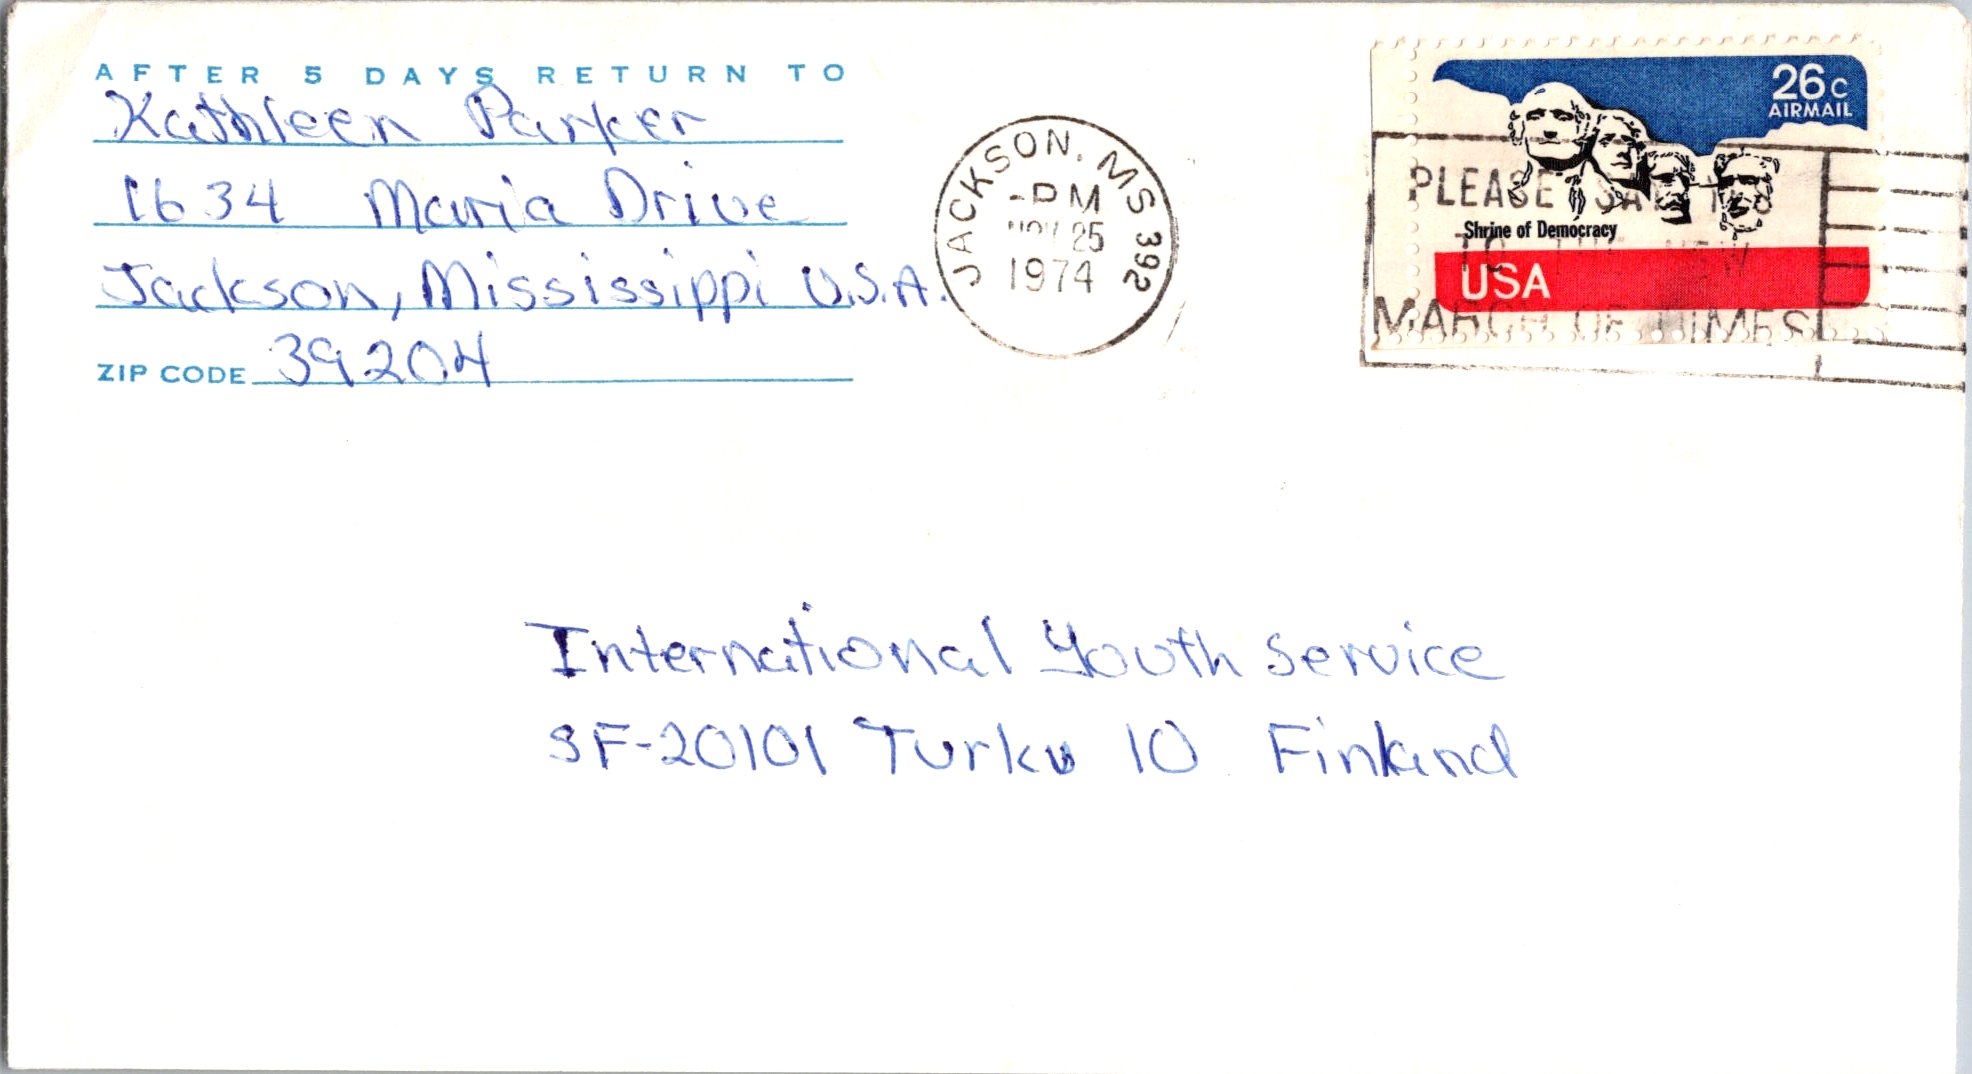 AFTER 5 DAYS RETURN TO
Kathleen Parker
1634 Maria Drive
Jackson, Mississippi U.S.A.
ZIP CODE 39204
JACKSON, MS 392
PM
NOV 25
1974
26c
AIRMAIL
Shrine of Democracy
USA
PLEASE SAY YES
TO THE NEW
MARCH OF DIMES
International Youth Service
SF-20101 Turku 10 Finland